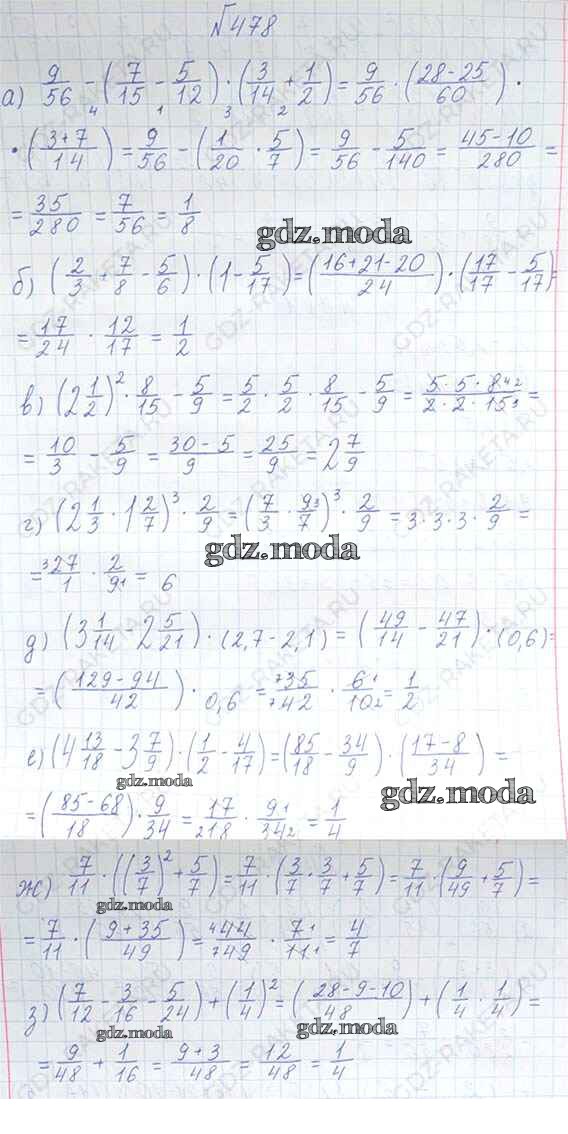 №478
а) 9/56 - (7/15 - 5/12) · (3/14 + 1/2) = 9/56 · (28-25/60) ·
4 1 3 2
· (3+7/14) = 9/56 - (1/20 · 5/7) = 9/56 - 5/140 = 45-10/280 =
= 35/280 = 7/56 = 1/8
gdz.moda
б) (2/3 + 7/8 - 5/6) · (1 - 5/17) = (16+21-20/24) · (17/17 - 5/17) =
= 17/24 · 12/17 = 1/2
в) (2 1/2)² · 8/15 - 5/9 = 5/2 · 5/2 · 8/15 - 5/9 = 5·5·8 4 2/2·2·15 3 =
= 10/3 - 5/9 = 30-5/9 = 25/9 = 2 7/9
г) (2 1/3 · 1 2/7)³ · 2/9 = (7/3 · 9 3/7)³ · 2/9 = 3·3·3 · 2/9 =
gdz.moda
= 3 27/1 · 2/9 1 = 6
д) (3 1/14 - 2 5/21) · (2,7 - 2,1) = (49/14 - 47/21) · (0,6) =
= (129-94/42) · 0,6 = 7 35/7 42 · 6 1/10 2 = 1/2
е) (4 13/18 - 3 7/9) · (1/2 - 4/17) = (85/18 - 34/9) · (17-8/34) =
gdz.moda
gdz.moda
= (85-68/18) · 9/34 = 17/2 18 · 9 1/34 2 = 1/4
ж) 7/11 · ((3/7)² + 5/7) = 7/11 · (3/7 · 3/7 + 5/7) = 7/11 · (9/49 + 5/7) =
gdz.moda
= 7/11 · (9+35/49) = 4 44/7 49 · 7 1/11 1 = 4/7
gdz.moda
з) (7/12 - 3/16 - 5/24) + (1/4)² = (28-9-10/48) + (1/4 · 1/4) =
gdz.moda
gdz.moda
= 9/48 + 1/16 = 9+3/48 = 12/48 = 1/4
GDZ-RAKETA.RU